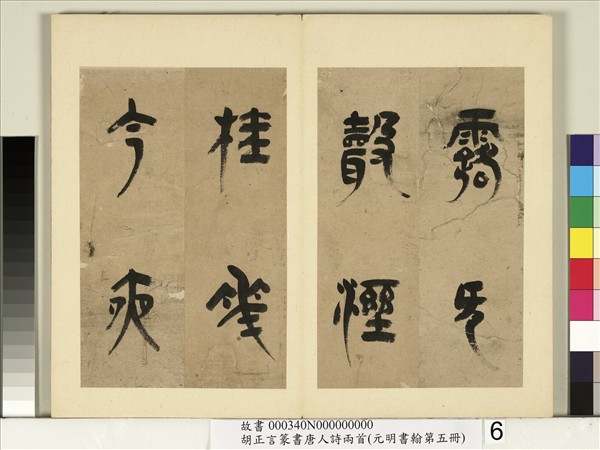 露无
聲溼
桂花
今夜
故書 000340N000000000
胡正言篆書唐人詩兩首(元明書翰第五冊)
6